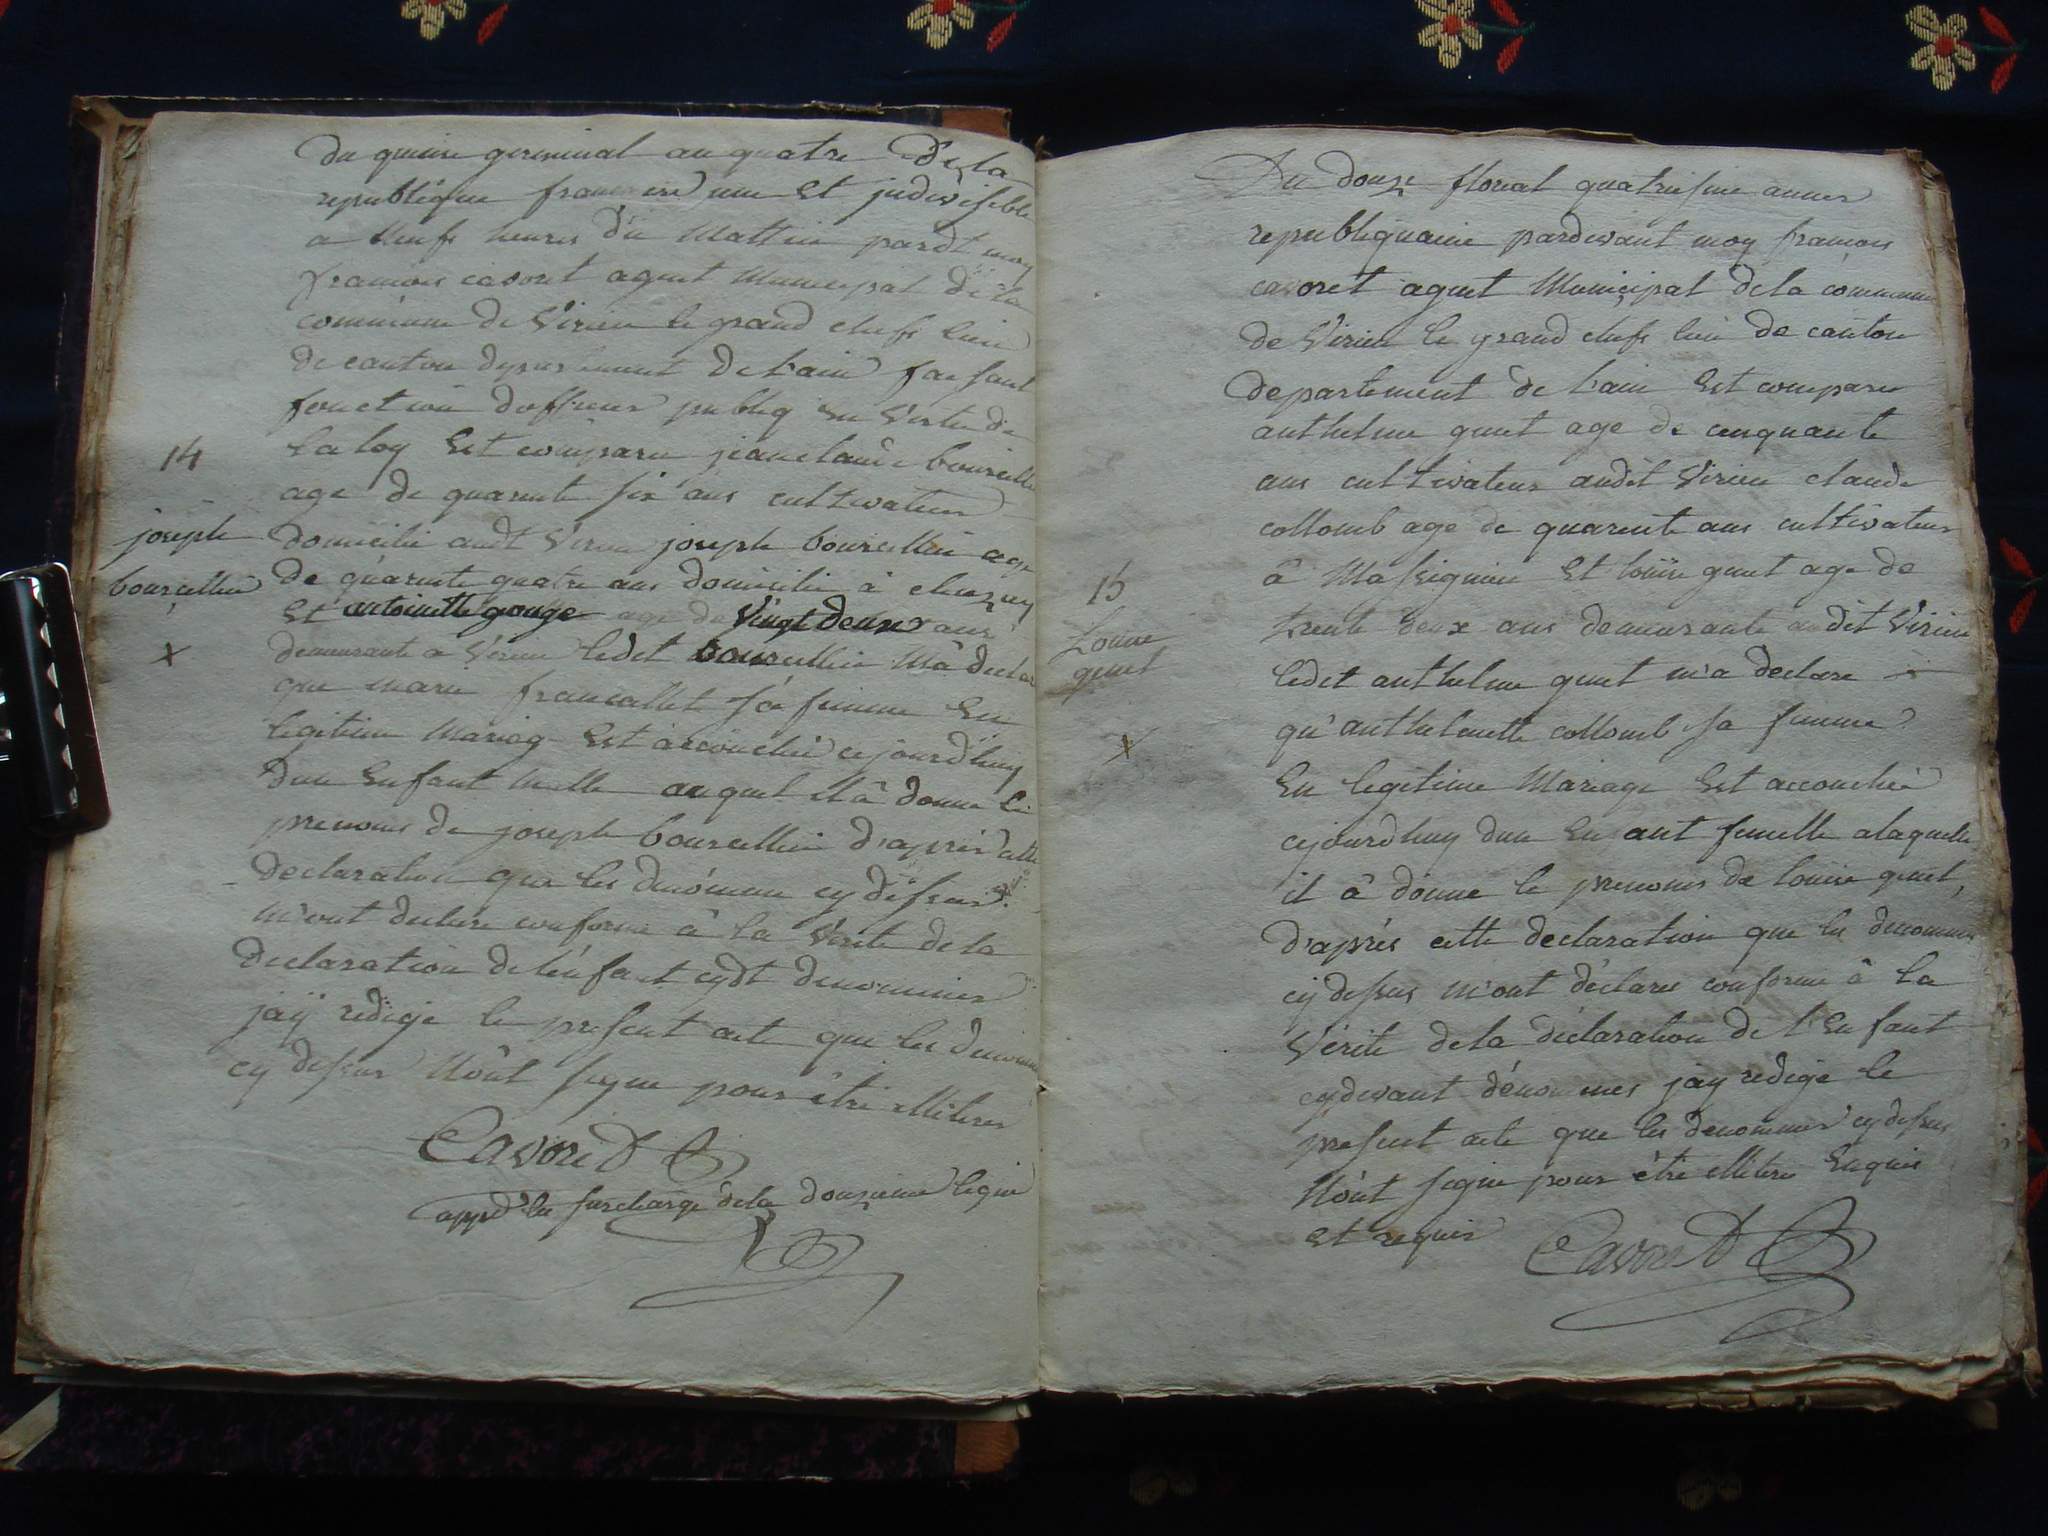 Du quinze germinal an quatre De la
republique francoise une Et jndivisible
a Neufs heures du Mattin pardt moy
francois cavoret agent Municipal de la
commune de Virieu le grand chefs lieu
de canton departement De l'ain faisant
fonction dofficier publiq En Vertu de
la loy Est comparu jean claude bourcellin
age de quarente six ans cultivateur
14
joseph
bourcellin
x
domicilié audt Virieu joseph bourcellin age
de quarente quatre ans domicilié à
Et antoinette gouge age de Vingt deux ans
demeurante a Virieu ledit bourcellin M'a declare
que marie francallet sa femme En
legitime Mariag Est accouchée cejourdhuy
dun Enfant Malle auquel il â donne le
prenoms de joseph bourcellin d'apres cette
declaration que les denommé cy dessus
m'ont declare conforme â la Verité de la
declaration de l'enfant cydt denommés
jaÿ redige le present acte que les denommé
cy dessus N'ont signe pour être illiteres
Cavoret
appd la surcharge de la douzieme ligne
Du douze floreal quatriesme annee
republiquaine pardevant moy francois
cavoret agent Municipal de la commune
de Virieu le grand chefs lieu de canton
departement de l'ain Est comparu
anthelme guet age de cinquante
ans cultivateur audit Virieu claude
collomb age de quarente ans cultivateur
à Massignieu Et louise guet age de
15
Louise
guet
x
trente deux ans demeurante audit Virieu
ledit anthelme guet m'a declare
qu'anthelmette collomb sa femme
En legitime Mariage Est accouchée
cejourdhuy dun Enfant femelle alaquelle
il â donne le prenoms de louise guet,
d'après cette declaration que les denommés
cy dessus m'ont déclare conforme â la
Vérité de la déclaration de l'Enfant
cydevant dénommes jay redige le
present acte que les denommés cy dessus
N'ont signe pour être illitere Enquis
et requis
Cavoret